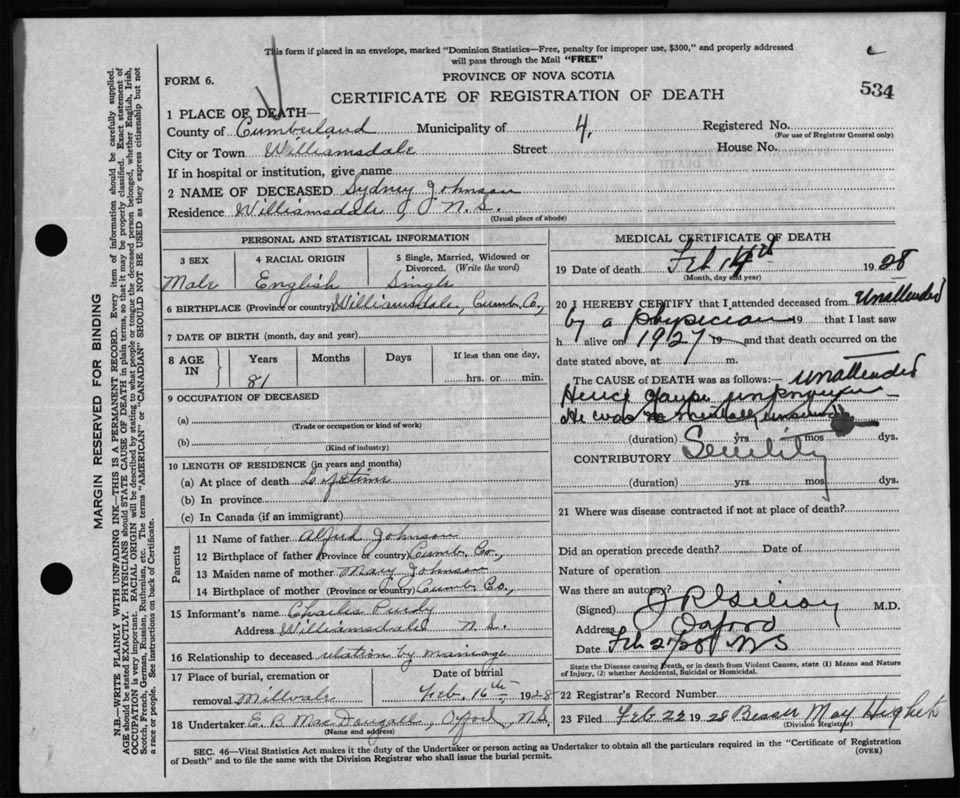 This form if placed in an envelope, marked "Dominion Statistics—Free, penalty for improper use, $300," and properly addressed
will pass through the Mail "FREE"
FORM 6.
PROVINCE OF NOVA SCOTIA
534
CERTIFICATE OF REGISTRATION OF DEATH
1 PLACE OF DEATH—
County of Cumberland Municipality of 4. Registered No.
(For use of Registrar General only)
City or Town Williamsdale Street House No.
If in hospital or institution, give name
2 NAME OF DECEASED Sydney Johnson
Residence Williamsdale, N.S.
(Usual place of abode)
PERSONAL AND STATISTICAL INFORMATION
3 SEX 4 RACIAL ORIGIN 5 Single, Married, Widowed or
Divorced. (Write the word)
Male English Single
6 BIRTHPLACE (Province or country) Williamsdale, Cumb. Co.,
7 DATE OF BIRTH (month, day and year)
8 AGE IN Years Months Days If less than one day,
81 hrs. or min.
9 OCCUPATION OF DECEASED
(a)
(Trade or occupation or kind of work)
(b)
(Kind of industry)
10 LENGTH OF RESIDENCE (in years and months)
(a) At place of death Lifetime
(b) In province
(c) In Canada (if an immigrant)
Parents
11 Name of father Alfred Johnson
12 Birthplace of father (Province or country) Cumb. Co.,
13 Maiden name of mother Mary Johnson
14 Birthplace of mother (Province or country) Cumb. Co.,
15 Informant's name Charles Purdy
Address Williamsdale N.S.
16 Relationship to deceased relation by marriage
17 Place of burial, cremation or Date of burial
removal Millvale Feb. 16th, 1928
18 Undertaker E. B. MacDougall, Oxford, N.S.
(Name and address)
MEDICAL CERTIFICATE OF DEATH
19 Date of death Feb 1928
(Month, day and year)
20 I HEREBY CERTIFY that I attended deceased from Unattended
by a physician 19 that I last saw
h alive on 1927 19 and that death occurred on the
date stated above, at m.
The CAUSE OF DEATH was as follows:— unattended
Hence cause unknown
He was mentally unsound
(duration) yrs mos dys.
CONTRIBUTORY Senility
(duration) yrs. mos. dys.
21 Where was disease contracted if not at place of death?
Did an operation precede death? Date of
Nature of operation
Was there an autopsy?
(Signed) M.D.
Address Oxford
Date Feb 21/28 NS
State the Disease causing Death, or in death from Violent Causes, state (1) Means and Nature
of Injury, (2) whether Accidental, Suicidal or Homicidal.
22 Registrar's Record Number
23 Filed Feb 22 1928 May
(Division Registrar)
SEC. 46—Vital Statistics Act makes it the duty of the Undertaker or person acting as Undertaker to obtain all the particulars required in the "Certificate of Registration
of Death" and to file the same with the Division Registrar who shall issue the burial permit. (OVER)
MARGIN RESERVED FOR BINDING
N.B.—WRITE PLAINLY WITH UNFADING INK—THIS IS A PERMANENT RECORD. Every item of information should be carefully supplied.
AGE should be stated EXACTLY. PHYSICIANS should STATE CAUSE OF DEATH in plain terms, so that it may be properly classified. Exact statement of
OCCUPATION is very important. RACIAL ORIGIN will be described by stating to what people or tongue the deceased person belonged, whether English, Irish,
Scotch, French, German, Russian, Ruthenian, etc. The terms "AMERICAN" or "CANADIAN" SHOULD NOT BE USED as they express citizenship but not
a race or people. See instructions on back of Certificate.